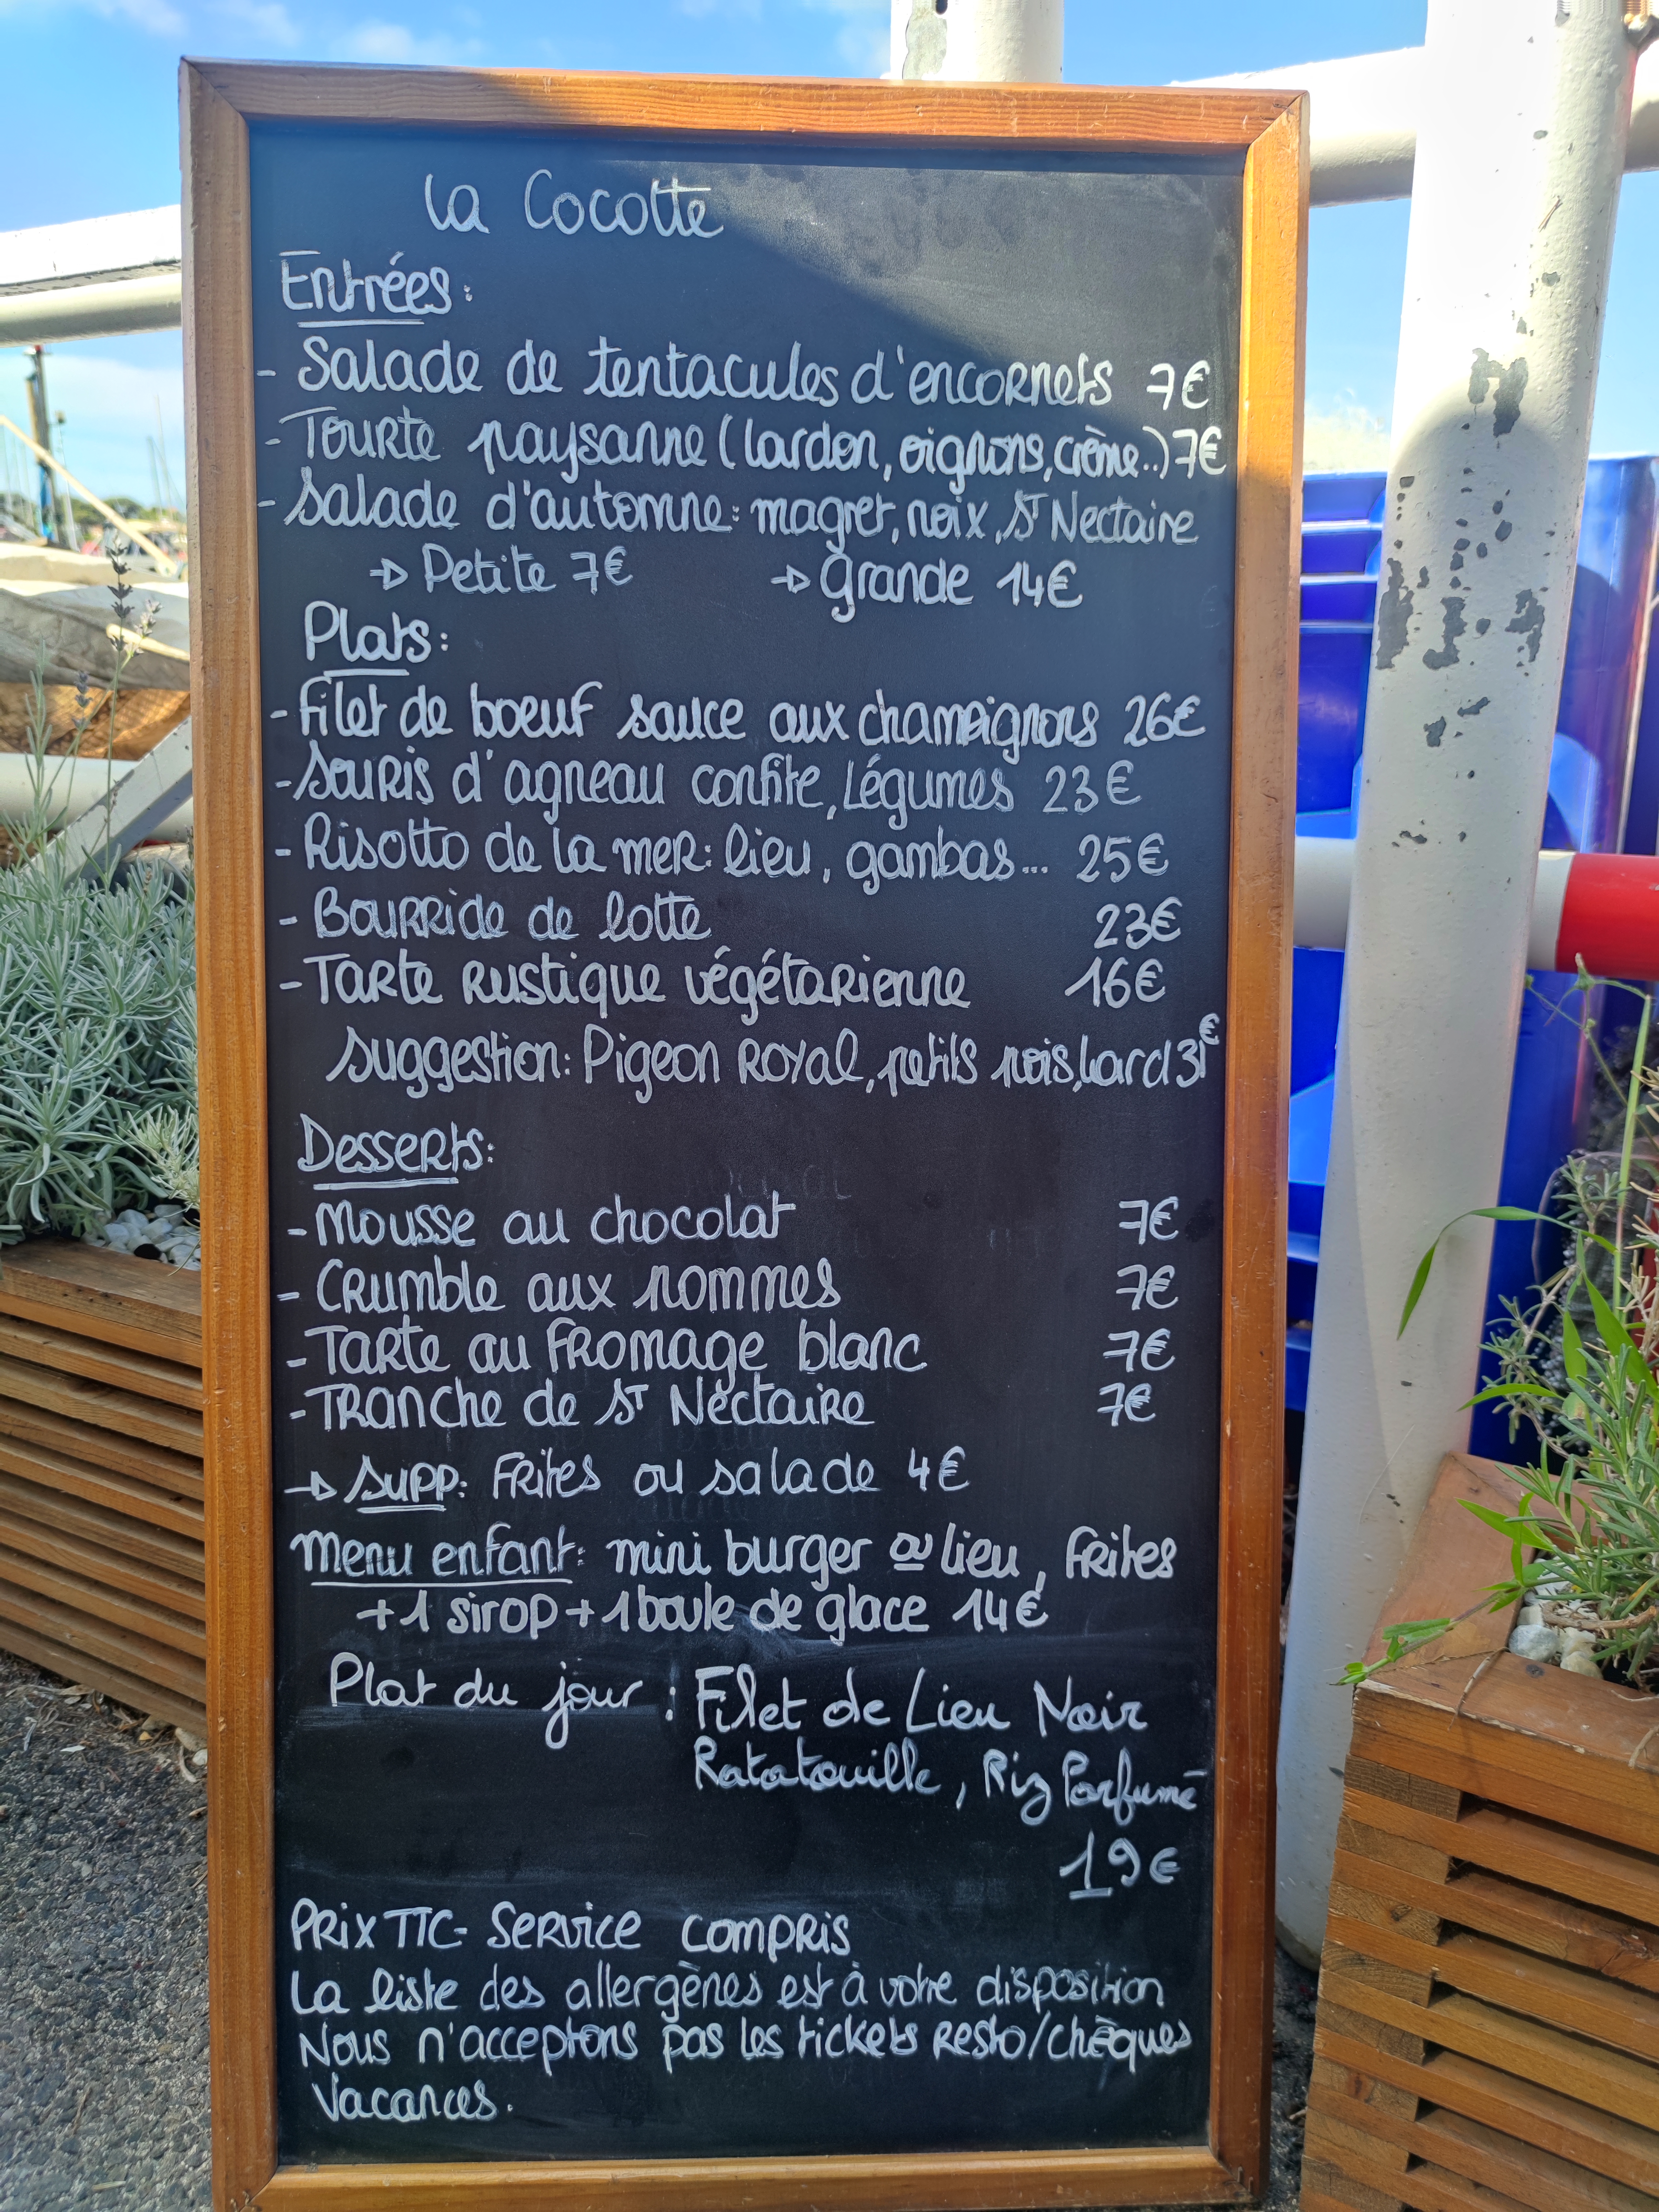 La Cocotte
Entrées:
- Salade de tentacules d'encornets 7€
- Tourte paysanne (lardon, oignons, crème..) 7€
- Salade d'automne: magret, noix, ST Nectaire
→ Petite 7€ → grande 14€
Plats:
- Filet de boeuf sauce aux champignons 26€
- Souris d'agneau confite, Légumes 23€
- Risotto de la mer: lieu, gambas... 25€
- Bourride de lotte 23€
- Tarte rustique végétarienne 16€
Suggestion: Pigeon Royal, petits pois, lard 31€
Desserts:
- Mousse au chocolat 7€
- Crumble aux pommes 7€
- Tarte au fromage blanc 7€
- Tranche de ST Nectaire 7€
→ Supp: Frites ou salade 4€
Menu enfant: mini burger ou lieu, frites
+ 1 sirop + 1 boule de glace 14€
Plat du jour : Filet de Lieu Noir
Ratatouille, Riz Parfumé
19€
Prix TTC - Service compris
La liste des allergènes est à votre disposition
Nous n'acceptons pas les tickets resto/chèques
Vacances.